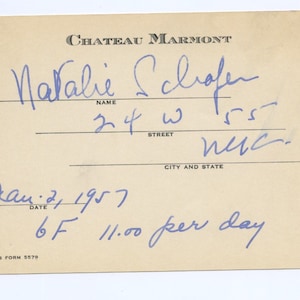 CHATEAU MARMONT
Natalie Schafer
NAME
24 W 55
STREET
NYC.
CITY AND STATE
Jan. 2, 1957
DATE
6F 11.00 per day
FORM 5579